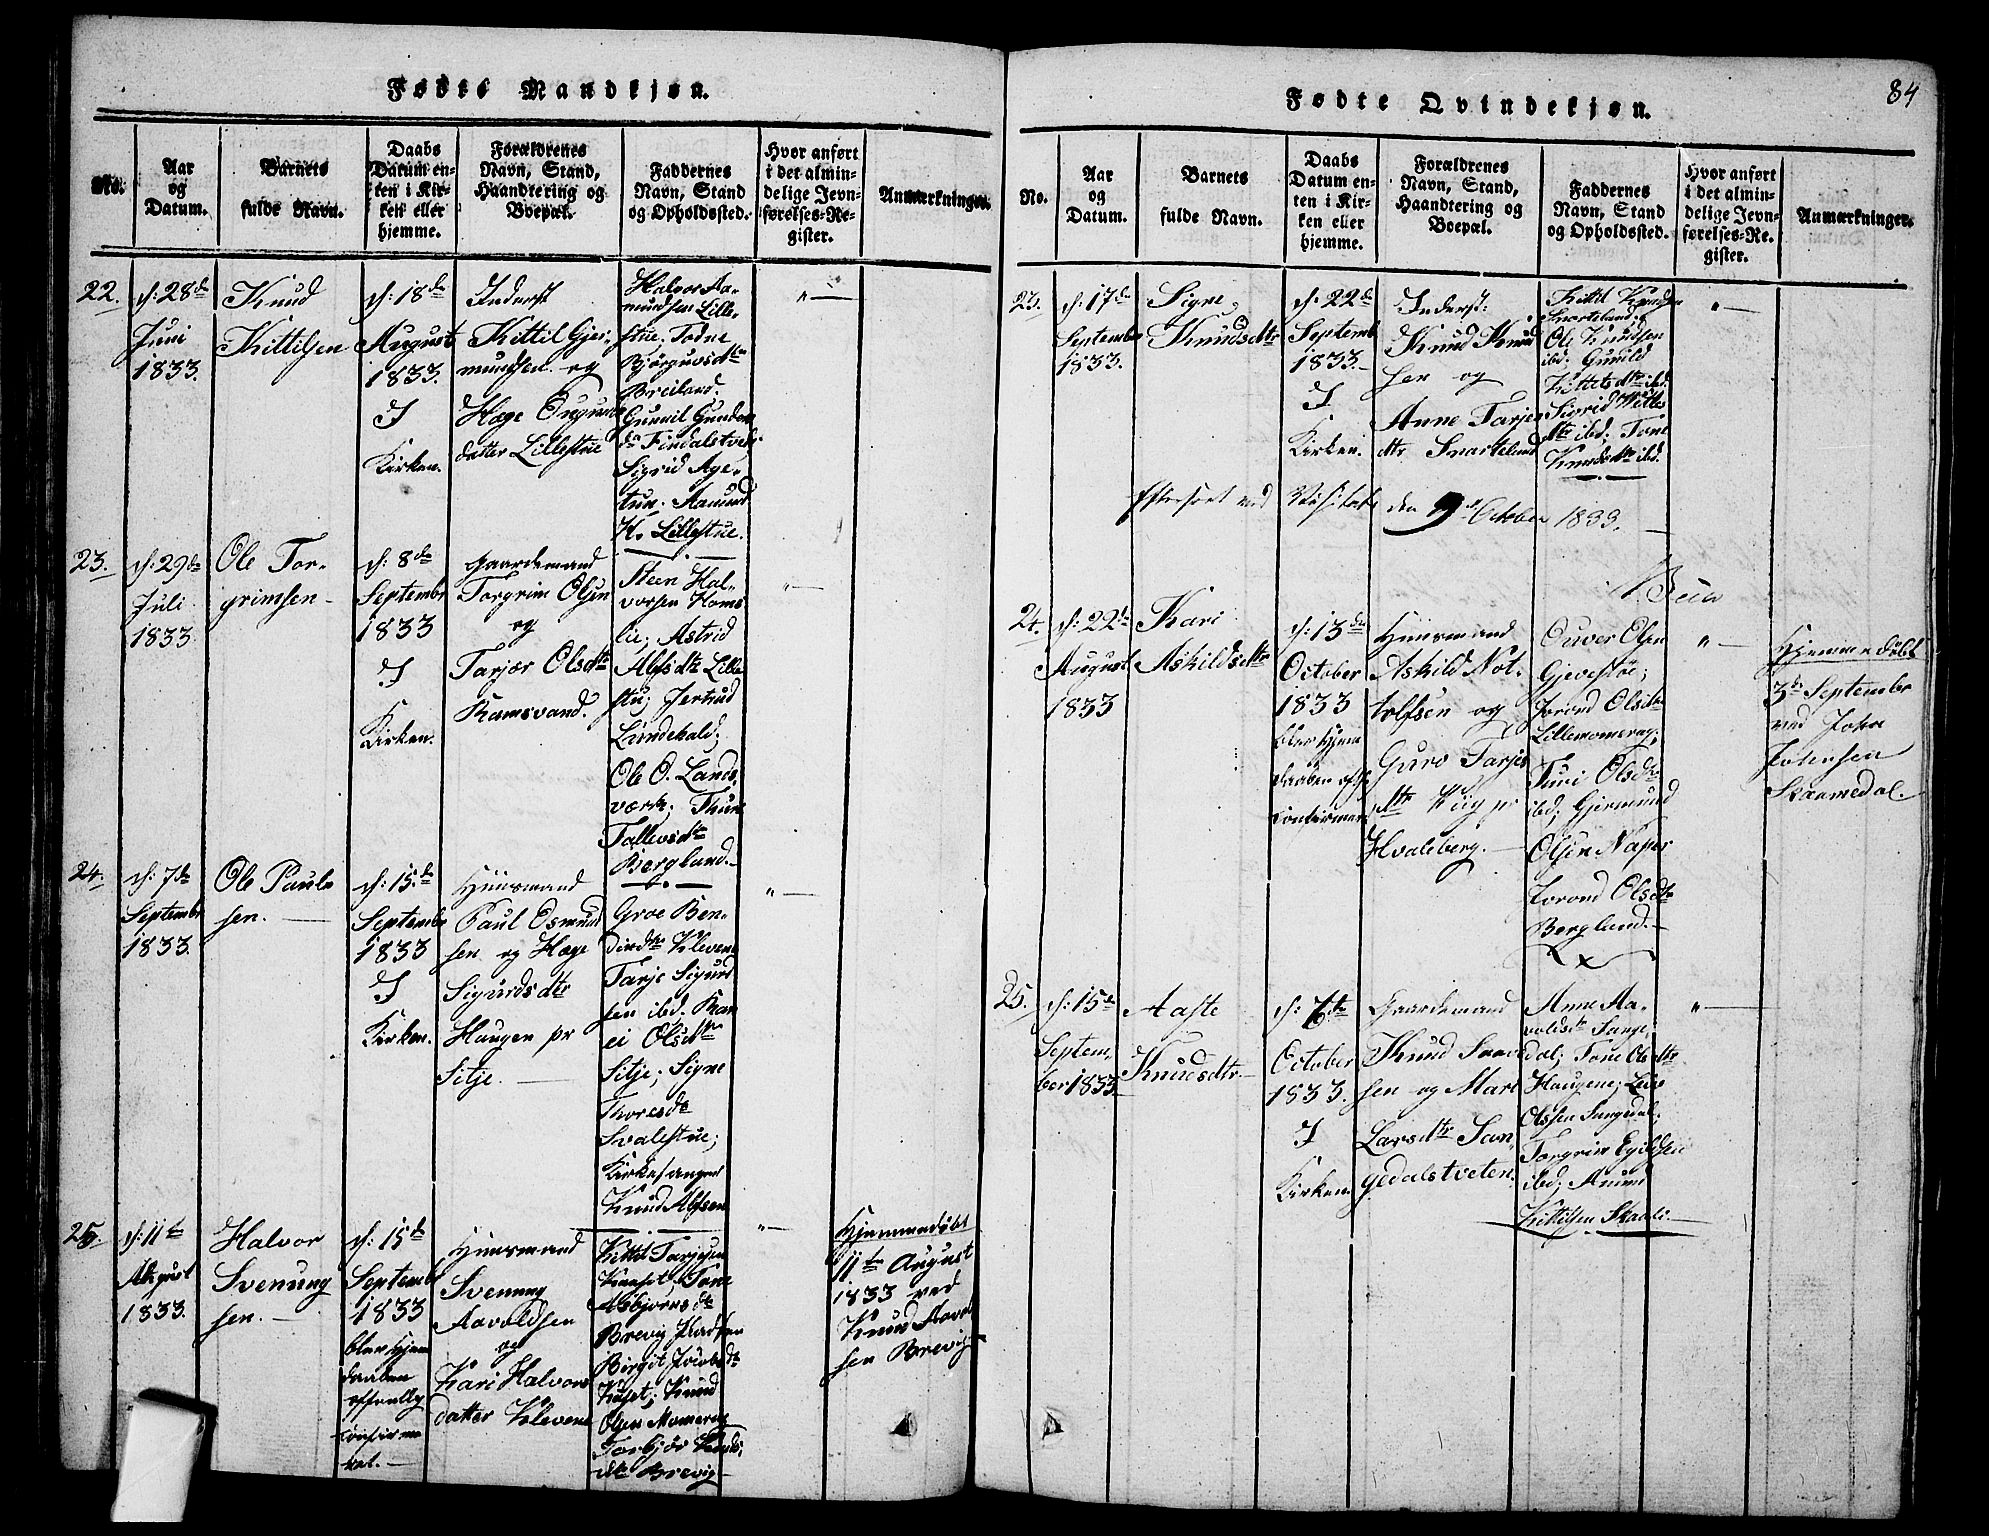 Fødte Mandkjøn.
No.
Aar
og
Datum.
Barnets
fulde Navn.
Daabs
Datum en-
ten i Kir-
ken eller
hjemme.
Forældrenes
Navn, Stand,
Haandtering og
Boepæl.
Faddernes
Navn, Stand
og Opholdssted.
Hvor anført
i det almin-
delige Jevn-
førelses-Re-
gister.
Anmærkninger.
22.
d: 28de
Juni
1833.
Knud
Kittilsen
d: 18de
August
1833.
I
Kirken.
Inderst
Kittil Gjer-
mundsen og
Hæge
datter Lillestue
Halvor Aa-
mundsen Lille-
stue; Todne
Bjørguvsdtr
Breiland;
Gunvil
Sigrid
tun. Aamund
K. Lillestue.
"—
23.
d: 29de
Juli
1833.
Ole Tor-
grimsen
d: 8de
Septembr
1833
I
Kirken.
Gaardemand
Torgrim Olsen
og
Tarjær Olsdtr
Ramsvand.
Steen Hal-
vorsen Homs
lie; Astrid
Alfsdtr Lille
stu; Jertrud
Lundekald;
Ole O. Lands
værk; Thune
Tallevsdtr
Bergland.
"—
24.
d: 7de
Septembr
1833.
Ole Pauls
sen.
d: 15de
Septembr
1833
I
Kirken.
Huusmand
Paul Osmund
sen og Hæge
Sigurdsdtr
Haugen pr
Sitje.
Groe Ben-
dixdtr Kleven
Tarje Sigurd
sen ibd.
ei Olsdtr
Sitje; Signe
Thoresdtr
Svalestue;
Kirkesanger
Knud Alfsen
"—
25.
d: 11te
August
1833.
Halvor
Svenung
sen.
d: 15de
Septembr
1833
blev Hjem
daaben
offentlig
confirme
ret.
Huusmand
Svenung
Aavoldsen
og
Kari Halvors
datter Kleven
Kittil Tarjesen
Tone
Asbjørnsdtr
Brevig
Birgit Jacobsdtr
Knud
Olsen Momrag
Torbjør Knuds
dtr Brevig
"—
Hjemmedøbt
11te August
1833 ved
Knud Aavold
sen Brevig
84
Fødte Qvindekjøn.
No.
Aar
og
Datum.
Barnets
fulde Navn.
Daabs
Datum en-
ten i Kir-
ken eller
hjemme.
Forældrenes
Navn, Stand,
Haandtering og
Boepæl.
Faddernes
Navn, Stand
og Opholdssted.
Hvor anført
i det almin-
delige Jevn-
førelses-Re-
gister.
Anmærkninger.
23.
d: 17de
September
1833.
Signe
Knudsdtr
d: 22de
Septembr
1833.
I
Kirken.
Inderst
Knud Knud
sen og
Anne Tarjes
dtr. Snarteland
Kittil Knudsen
Snarteland;
Ole Knudsen
ibd; Gunild
Kittilsdtr ibd.
Sigrid Kittils
dtr ibd; Tone
Knudsdtr ibd.
"—
Efterseet ved Visitats den 9de October 1833.
24.
d: 22de
August
1833
Kari
Askildsdtr
d: 13de
October
1833
blev Hjem
daaben off.
confirmert
Huusmand
Askild Not-
tolfsen og
Guro Tarjes
dtr
Hvaleberg.
Ouver Olsen
Gjevestøe;
Jorond Olsdtr
Lillemomrag;
Turi Olsdtr
ibd; Gjermund
Olsen Naper
Jorond Olsdtr
Bergland.
"—
Hjemmedøbt
3de Septembr
ved John
Johnsen
Skaamedal.
25.
d: 15de
Septem-
ber 1833.
Aaste
Knudsdtr.
d: 6te
October
1833.
I
Kirken.
Gaardemand
Knud
sen og Mari
Larsdtr San-
gedalstveten.
Anne Aa-
voldsdtr Sange-
dal; Tone Olsdtr
Haugene; Leise
Olssen Sangedal;
Torgrim
ibd; Anund
Kittilsen Skaali.
"—